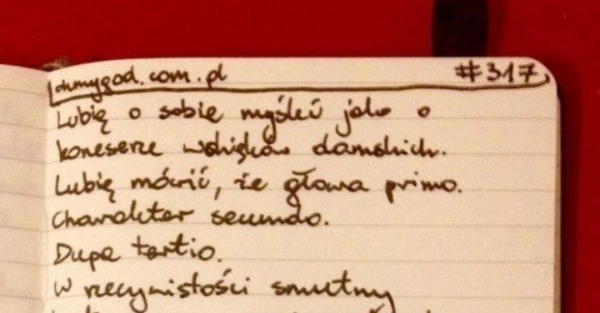 ohmygod.com.pl #317
Lubię o sobie myśleć jako o
koneserze wdzięków damskich.
Lubię mówić, że głowa primo.
Charakter secundo.
Dupa tertio.
W rzeczywistości smutny